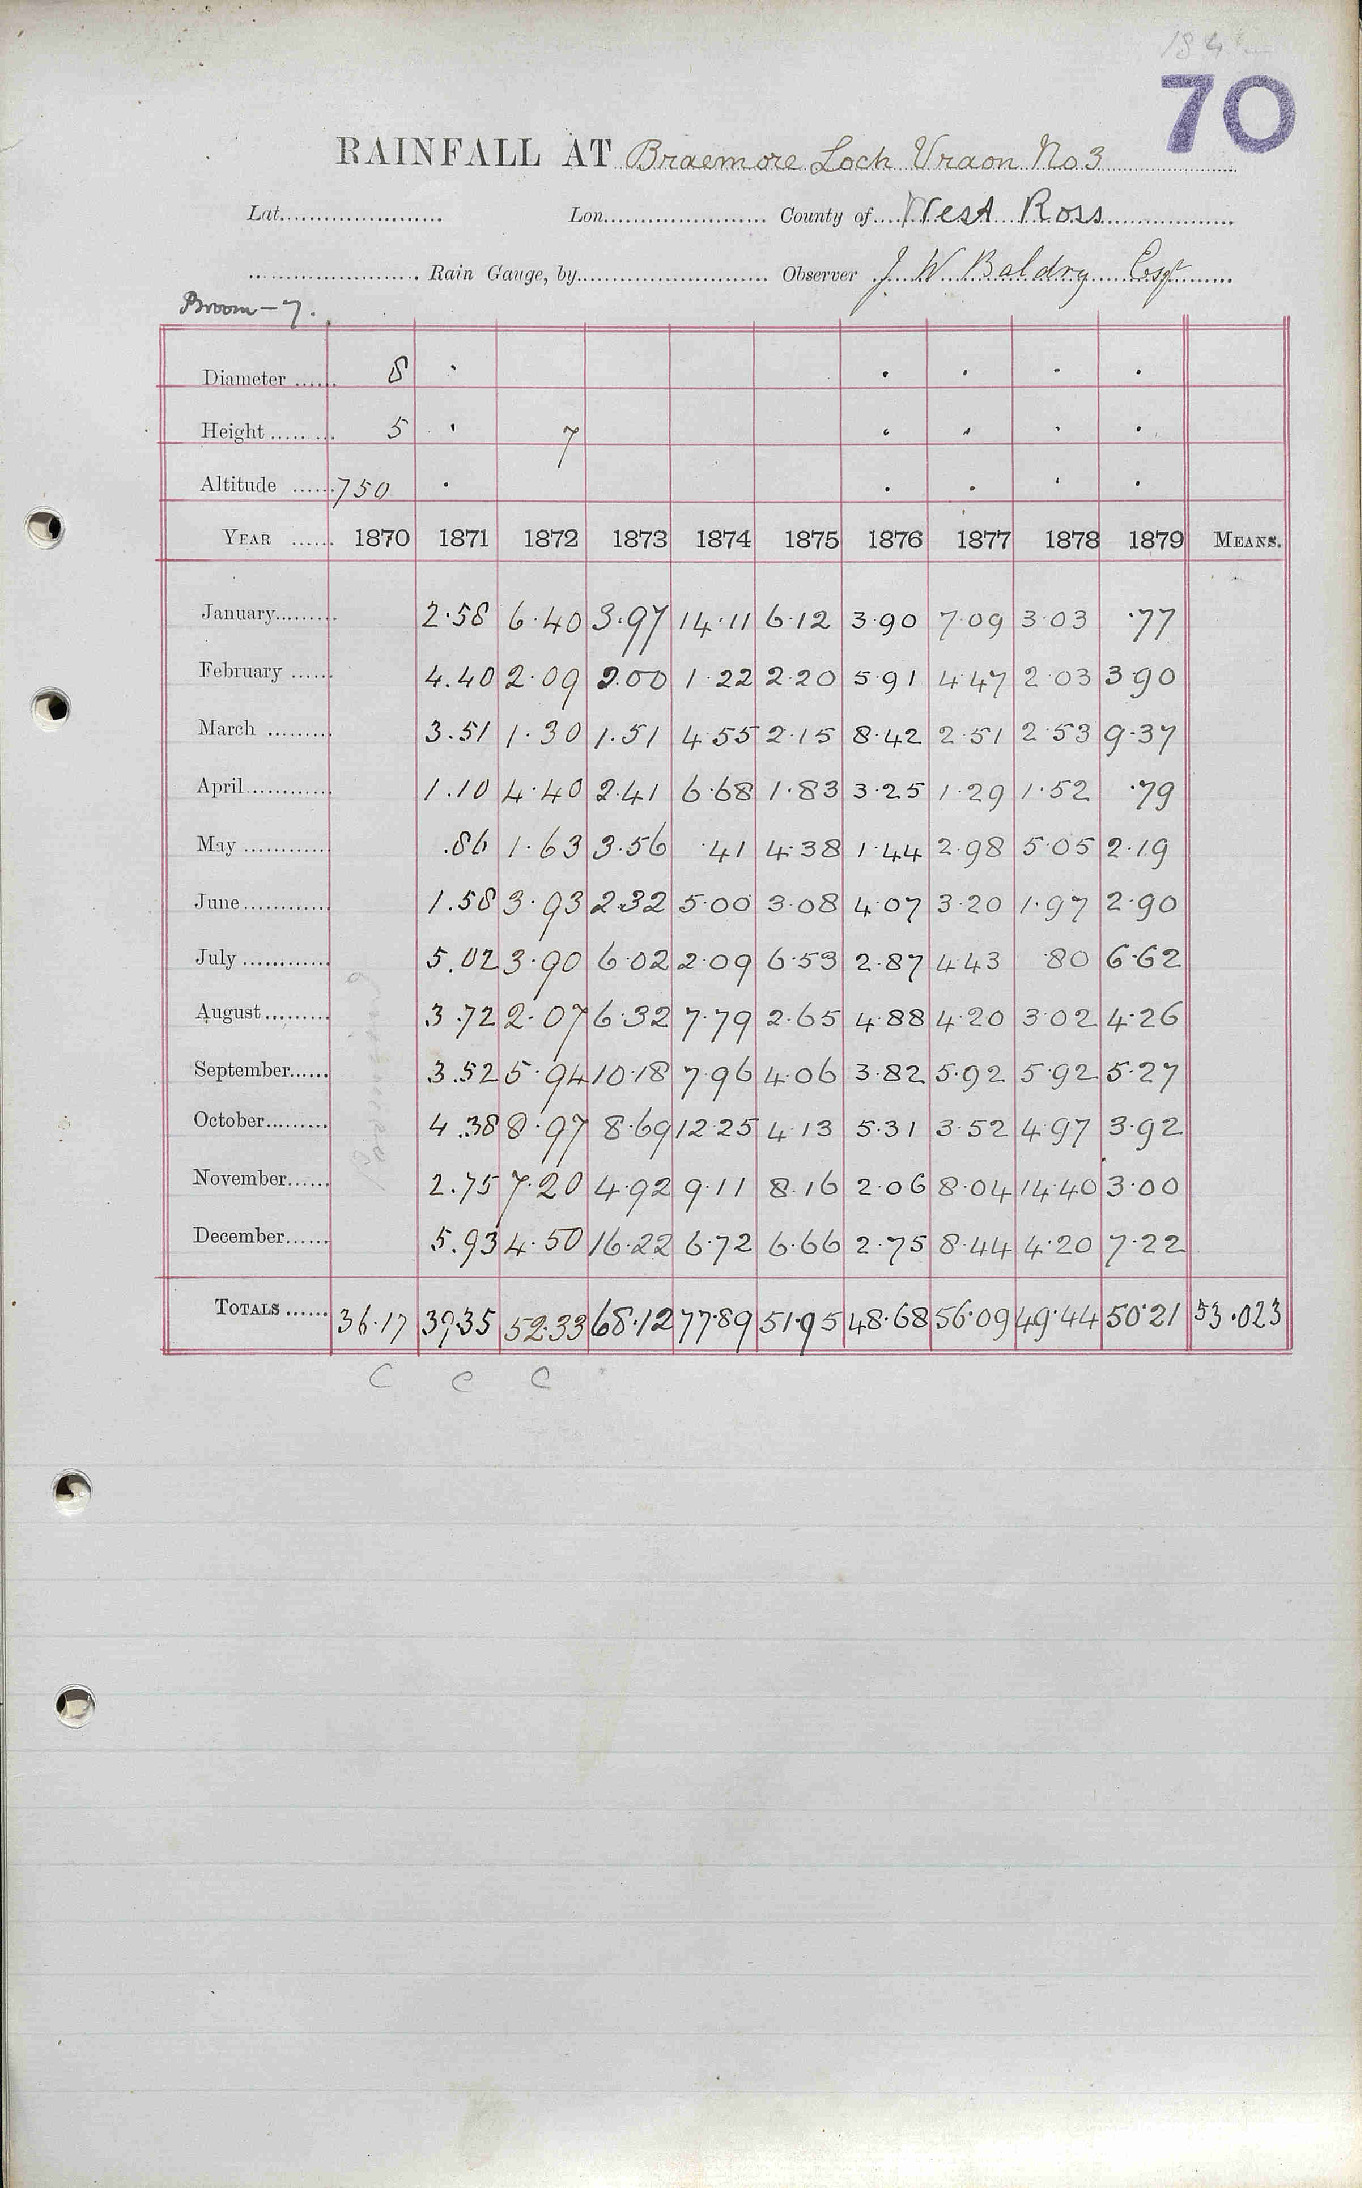 184
70
RAINFALL AT Braemore Loch Vraon No 3
Lat. Lon. County of West Ross
Rain Gauge, by Observer J. W. Baldry Esqr
Broom - 7.
Diameter 8 · · · · ·
Height 5 · 7 · · · ·
Altitude 750 · · · · ·
YEAR 1870 1871 1872 1873 1874 1875 1876 1877 1878 1879 MEANS.
January 2.58 6.40 3.97 14.11 6.12 3.90 7.09 3.03 .77
February 4.40 2.09 2.00 1.22 2.20 5.91 4.47 2.03 3.90
March 3.51 1.30 1.51 4.55 2.15 8.42 2.51 2.53 9.37
April 1.10 4.40 2.41 6.68 1.83 3.25 1.29 1.52 .79
May .86 1.63 3.56 .41 4.38 1.44 2.98 5.05 2.19
June 1.58 3.93 2.32 5.00 3.08 4.07 3.20 1.97 2.90
July 5.02 3.90 6.02 2.09 6.53 2.87 4.43 .80 6.62
August 3.72 2.07 6.32 7.79 2.65 4.88 4.20 3.02 4.26
September 3.52 5.94 10.18 7.96 4.06 3.82 5.92 5.92 5.27
October 4.38 8.97 8.69 12.25 4.13 5.31 3.52 4.97 3.92
November 2.75 7.20 4.92 9.11 8.16 2.06 8.04 14.40 3.00
December 5.93 4.50 16.22 6.72 6.66 2.75 8.44 4.20 7.22
TOTALS 36.17 39.35 52.33 68.12 77.89 51.95 48.68 56.09 49.44 50.21 53.023
C C C